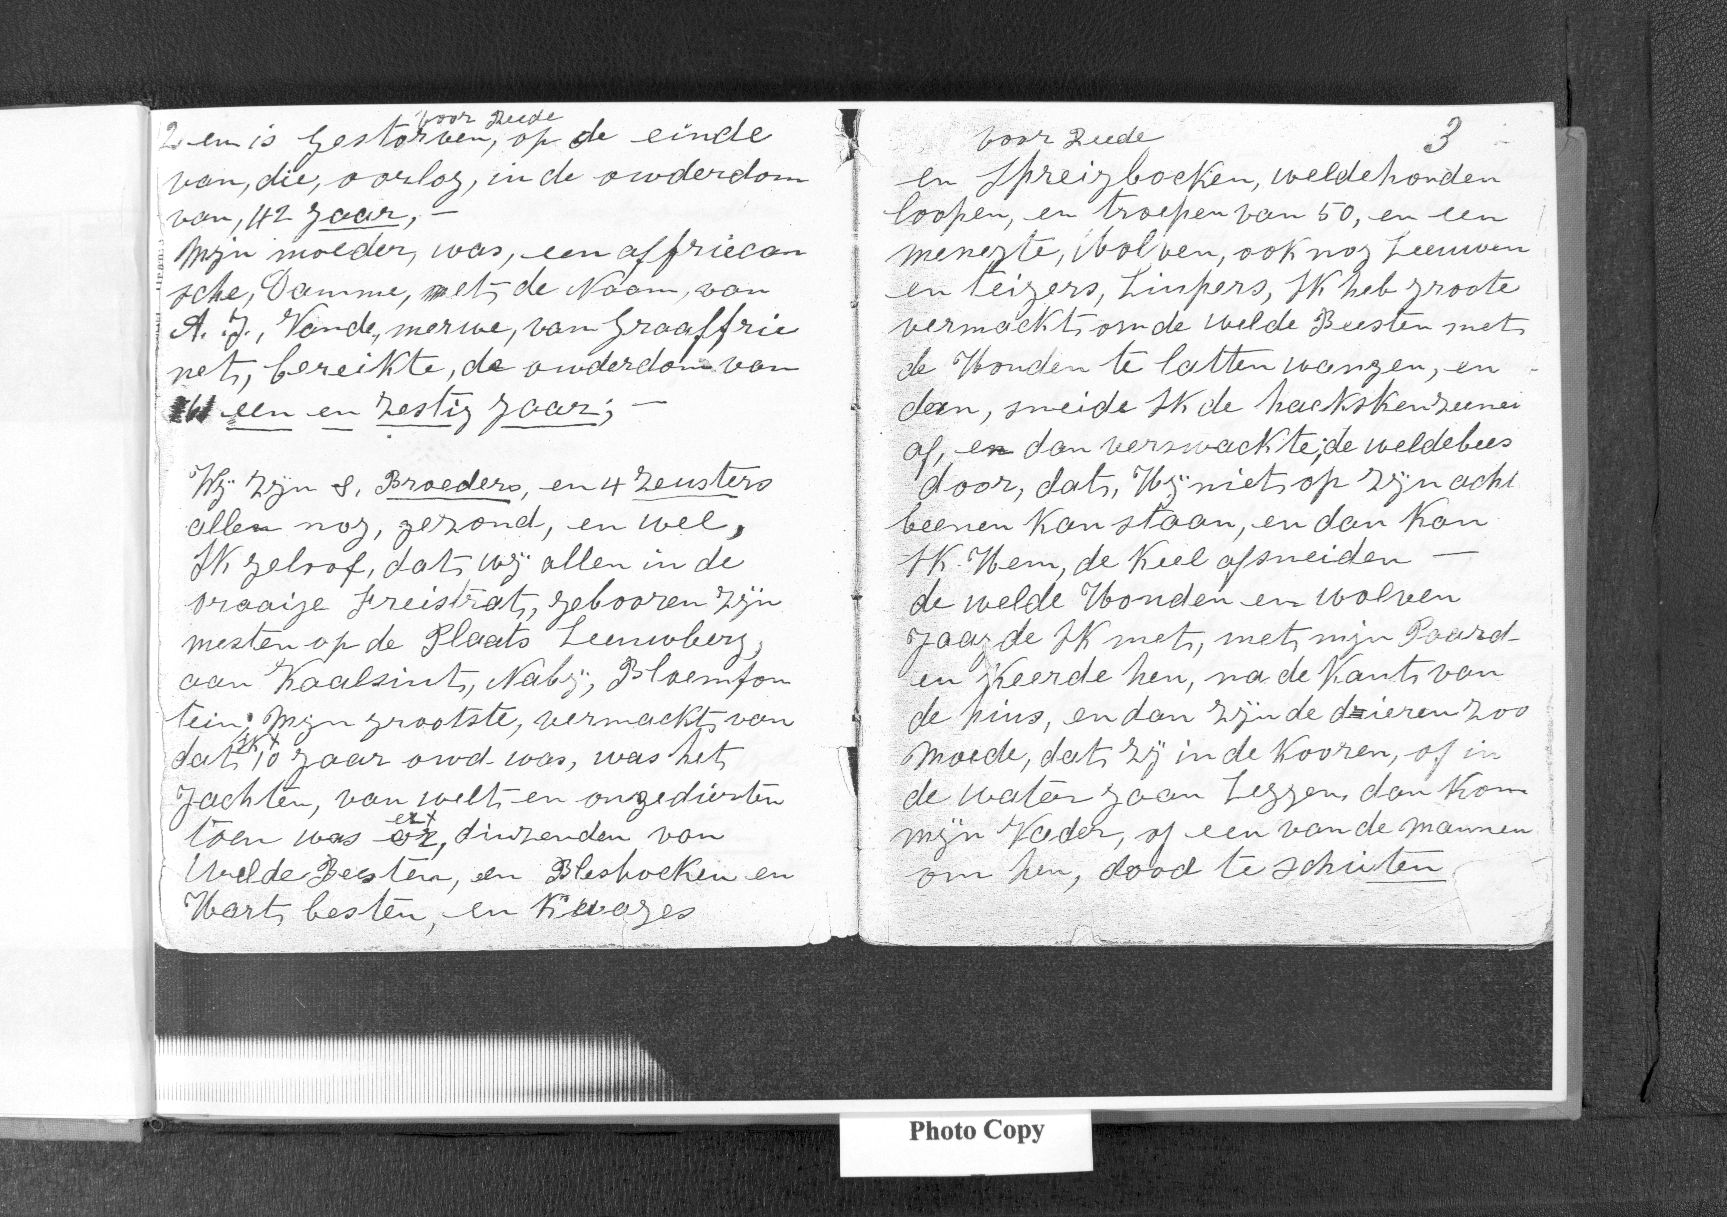 voor Rede
2 en is Gestorven, op de einde
van, die, oorlog, in de owderdom
van, 42 Jaar, —
Mijn moeder, was, een affriecan
sche, Damme, met, de Naam, van
A. J., Vande, merwe, van Graaffrie
net, bereikte, de owderdom van
een en zestig Jaar; —
Wij zijn 8, Broeders, en 4 Zeusters
allen nog, gezond, en wel,
Ik geloof, dat, wij allen in de
oraaige Freistrat, gebooren zijn
mesten op de Plaats Leeuwberg,
aan Kaalsiut, Nabij, Bloemfon
tein; Mijn grootste, vermackt, van
dat, ik 10 Jaar owd was, was het,
Jachten, van welt, en ongedierten
toen was er, duizenden van
Welde Beesten, en Blesbocken en
Hart, besten, en Kwages
voor Rede 3
en Spreigbocken, weldehonden
loopen, en troepen van 50, en een
menegte, Wolven, ook nog Leeuwen
en teigers, Linpers, Ik heb groote
vermackt, om de welde Beesten met,
de Honden te latten wangen, en
dan, sneide Ik de hackskenzeenei
af, en dan verswackte, de weldebees
door, dat, Hij niet, op zijn acht
beenen Kan staan, en dan Kan
Ik Hem, de Keel afsneiden —
de welde Honden en wolven
Jaagde Ik met, met, mijn Paard
en Keerde hen, na de Kant, van
de hius, en dan zijn de dieren zoo
moede, dat, zij in de Kooren, of in
de water gaan Leggen, dan Kom
mijn Vader, of een van de mannen
om hen, dood te schieten
Photo Copy